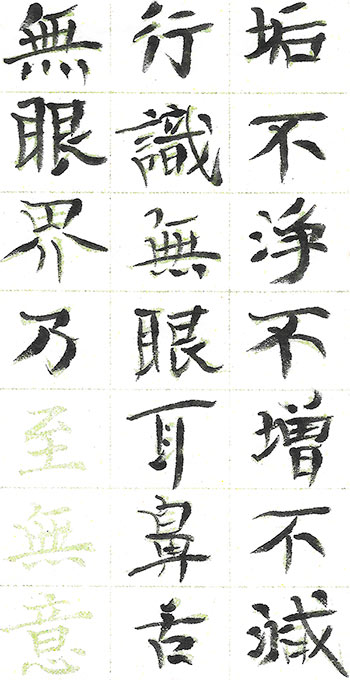 垢不浄不増不減
行識無眼耳鼻舌
無眼界乃至無意